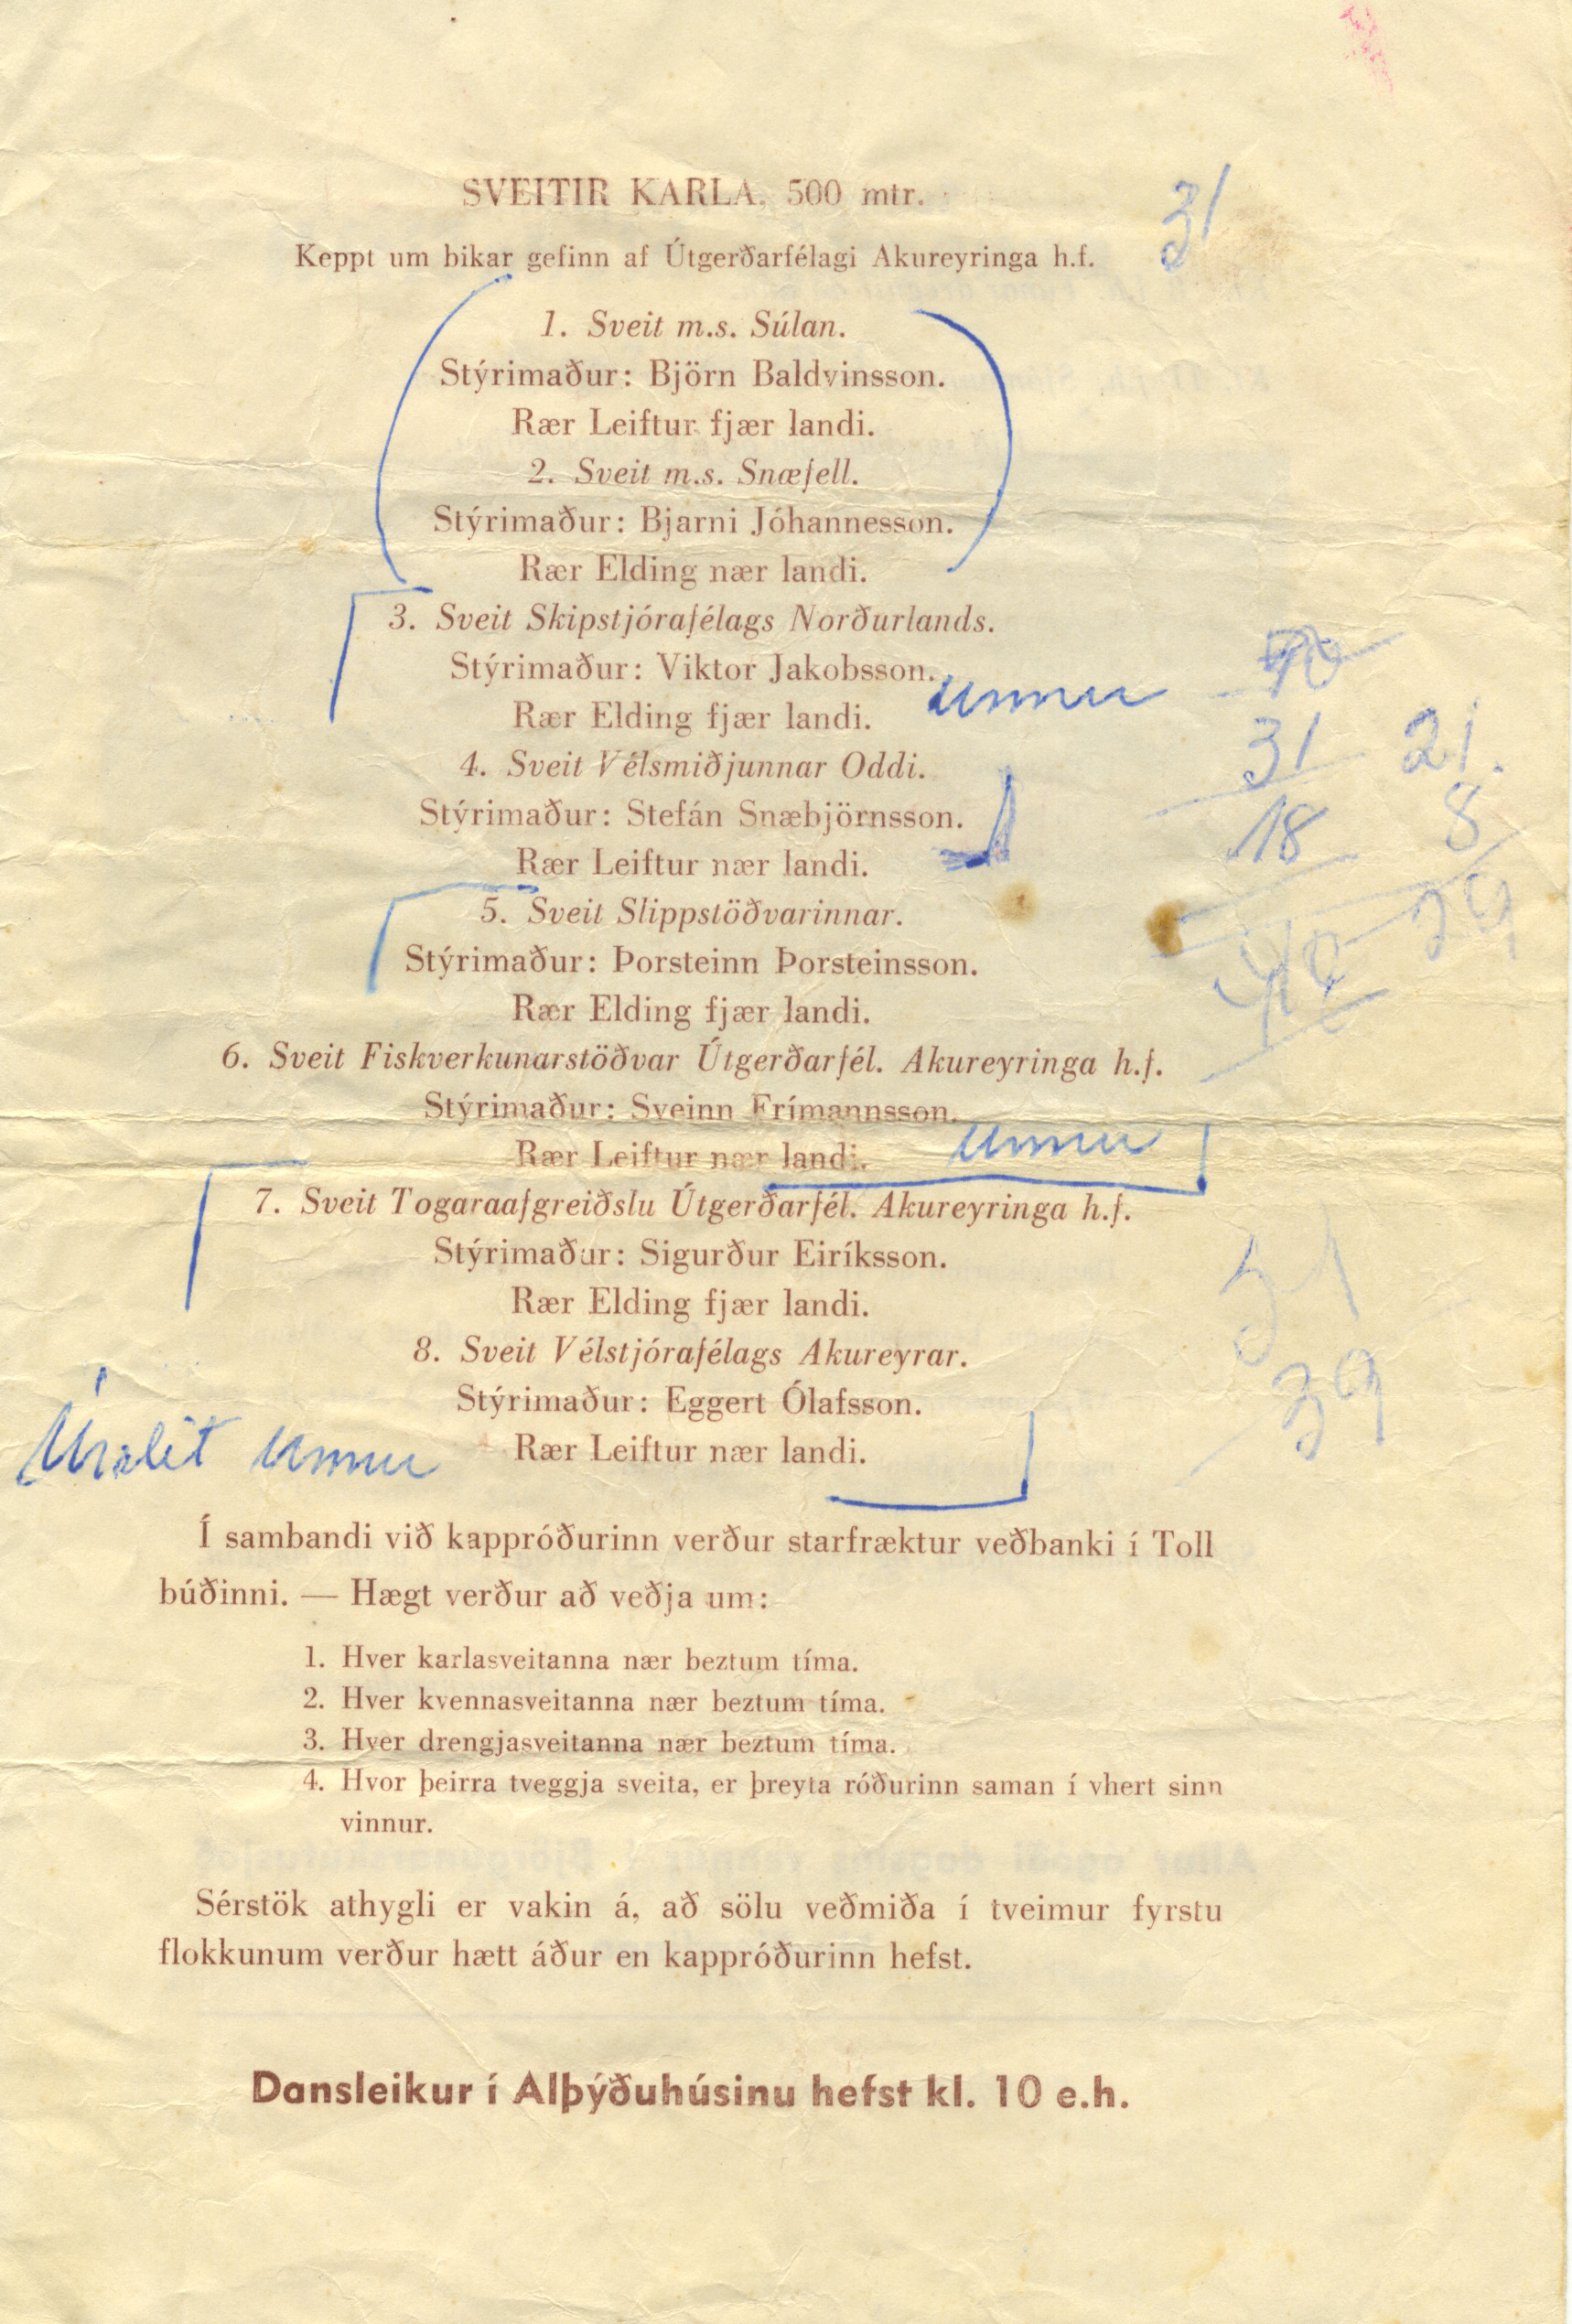 SVEITIR KARLA. 500 mtr.
31
Keppt um bikar gefinn af Útgerðarfélagi Akureyringa h.f.
1. Sveit m.s. Súlan.
Stýrimaður: Björn Baldvinsson.
Rær Leiftur fjær landi.
2. Sveit m.s. Snæfell.
Stýrimaður: Bjarni Jóhannesson.
Rær Elding nær landi.
3. Sveit Skipstjórafélags Norðurlands.
Stýrimaður: Viktor Jakobsson.
unnu
Rær Elding fjær landi.
31 21
4. Sveit Vélsmiðjunnar Oddi.
Stýrimaður: Stefán Snæbjörnsson.
18 8
Rær Leiftur nær landi.
5. Sveit Slippstöðvarinnar.
29
Stýrimaður: Þorsteinn Þorsteinsson.
Rær Elding fjær landi.
6. Sveit Fiskverkunarstöðvar Útgerðarfél. Akureyringa h.f.
Stýrimaður: Sveinn Frímannsson.
Rær Leiftur nær landi. unnu
7. Sveit Togaraafgreiðslu Útgerðarfél. Akureyringa h.f.
Stýrimaður: Sigurður Eiríksson.
Rær Elding fjær landi.
31
8. Sveit Vélstjórafélags Akureyrar.
Stýrimaður: Eggert Ólafsson.
39
Úrslit unnu Rær Leiftur nær landi.
Í sambandi við kappróðurinn verður starfræktur veðbanki í Toll
búðinni. — Hægt verður að veðja um:
1. Hver karlasveitanna nær beztum tíma.
2. Hver kvennasveitanna nær beztum tíma.
3. Hver drengjasveitanna nær beztum tíma.
4. Hvor þeirra tveggja sveita, er þreyta róðurinn saman í vhert sinn
vinnur.
Sérstök athygli er vakin á, að sölu veðmiða í tveimur fyrstu
flokkunum verður hætt áður en kappróðurinn hefst.
Dansleikur í Alþýðuhúsinu hefst kl. 10 e.h.